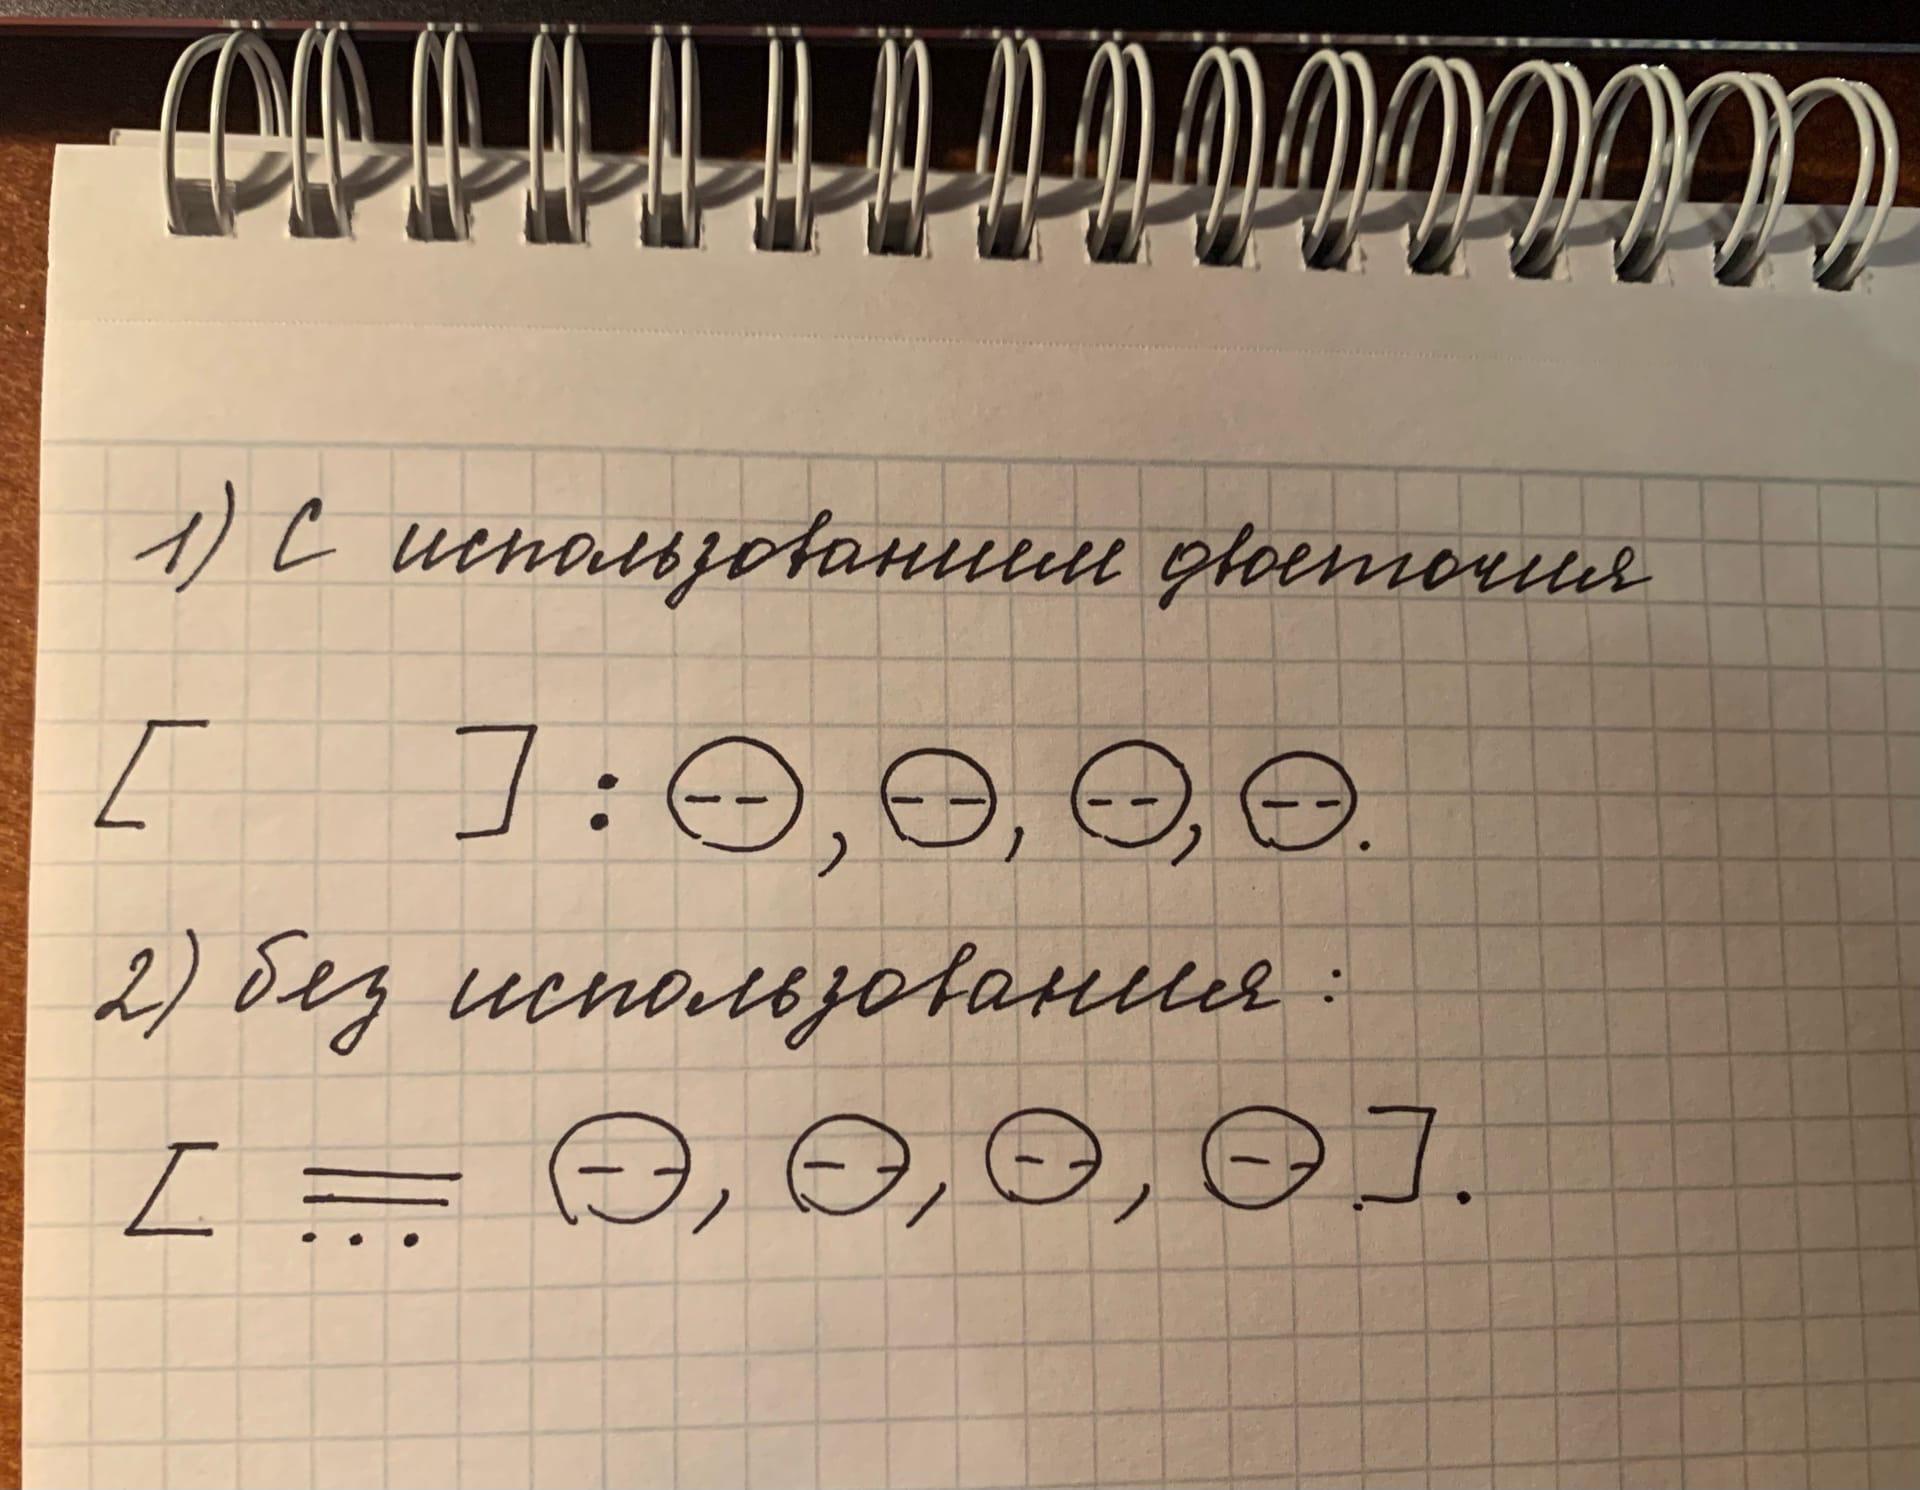 1) С использованием двоеточия
[ ] : (--), (--), (--), (--).
2) без использования :
[ (--), (--), (--), (--) ].